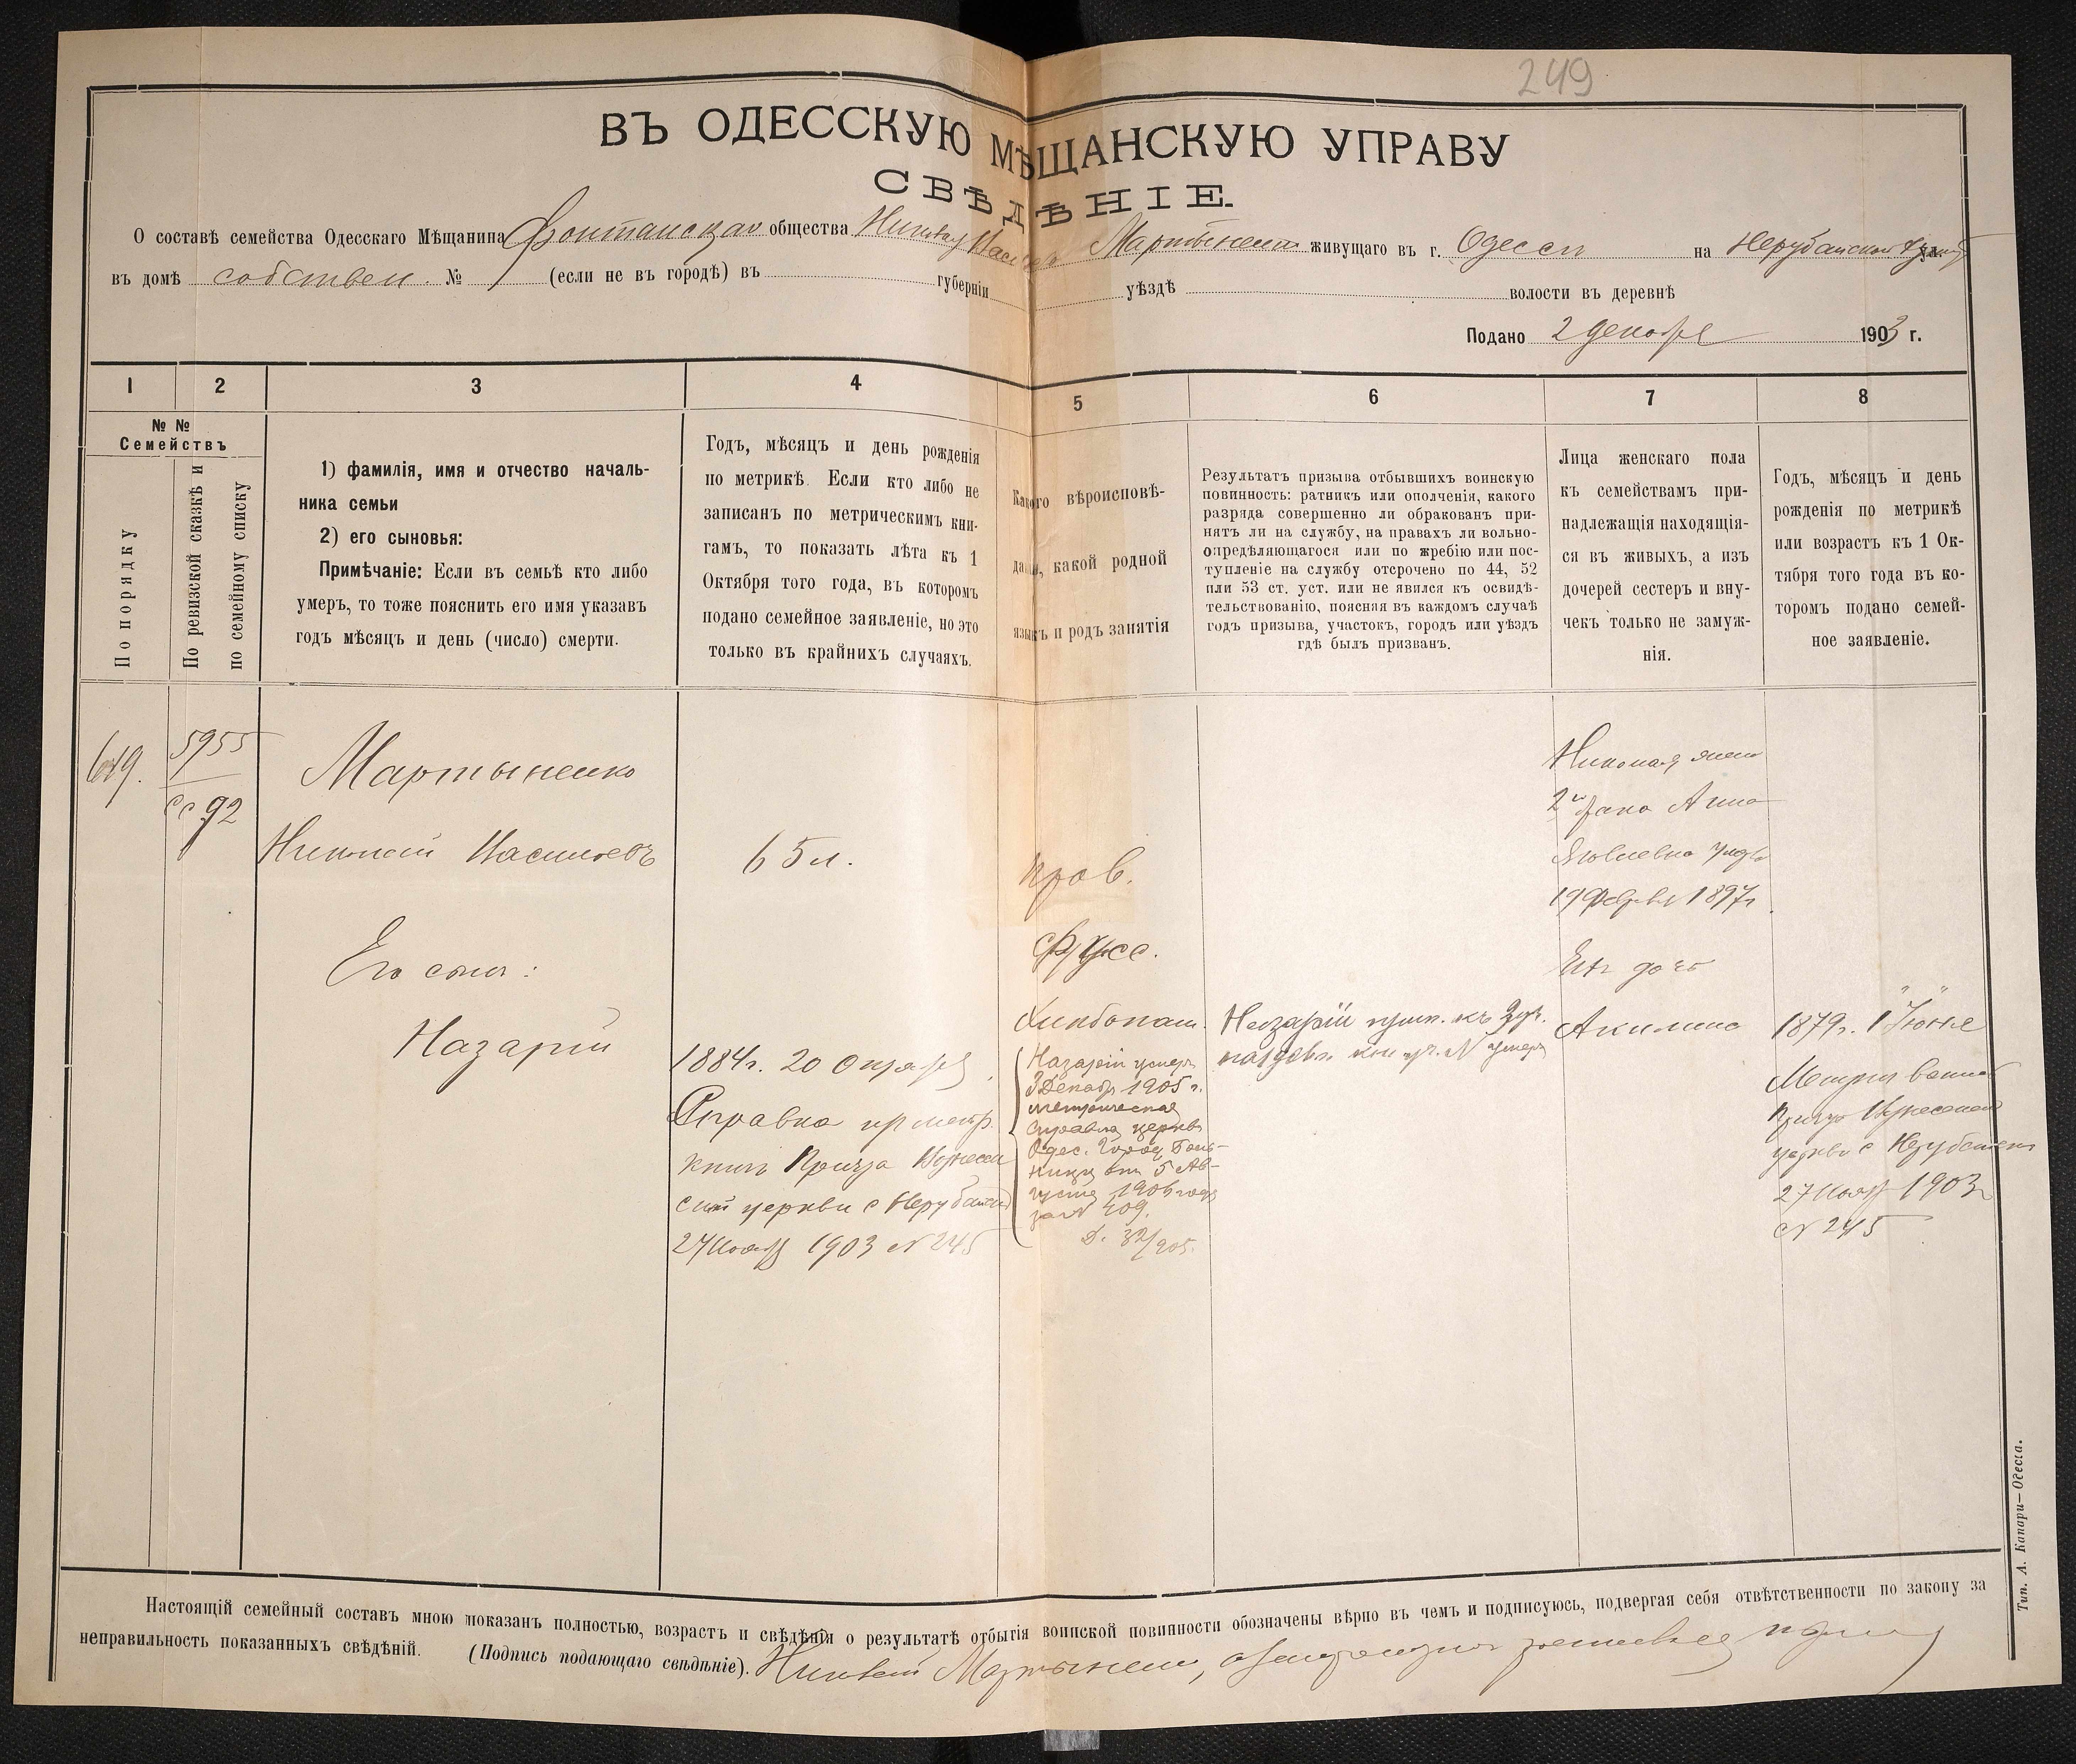 249
ВЪ ОДЕССКУЮ МѢЩАНСКУЮ УПРАВУ
СВѢДѢНІЕ.
О составѣ семейства Одесскаго Мѣщанина Фонтанскаго общества Мартыненко живущаго въ г. Одессы на ул.
въ домѣ собствен. № (если не въ городѣ) въ губерніи уѣздѣ волости въ деревнѣ
Подано 2 декабря 1903 г.
1 2 3 4 5 6 7 8
№ №
Семействъ
По порядку
По ревизской сказкѣ и
по семейному списку
1) фамилія, имя и отчество началь-
ника семьи
2) его сыновья:
Примѣчаніе: Если въ семьѣ кто либо
умеръ, то тоже пояснить его имя указавъ
годъ мѣсяцъ и день (число) смерти.
Годъ, мѣсяцъ и день рожденія
по метрикѣ. Если кто либо не
записанъ по метрическимъ кни-
гамъ, то показать лѣта къ 1
Октября того года, въ которомъ
подано семейное заявленіе, но это
только въ крайнихъ случаяхъ.
Какого вѣроисповѣ-
данія, какой родной
языкъ и родъ занятія
Результатъ призыва отбывшихъ воинскую
повинность: ратникъ или ополченія, какого
разряда совершенно ли обракованъ при-
нятъ ли на службу, на правахъ ли вольно-
опредѣляющагося или по жребію или пос-
тупленіе на службу отсрочено по 44, 52
или 53 ст. уст. или не явился къ освидѣ-
тельствованію, поясняя въ каждомъ случаѣ
годъ призыва, участокъ, городъ или уѣздъ
гдѣ былъ призванъ.
Лица женскаго пола
къ семействамъ при-
надлежащія находящія-
ся въ живыхъ, а изъ
дочерей сестеръ и вну-
чекъ только не замуж-
нія.
Годъ, мѣсяцъ и день
рожденія по метрикѣ
или возрастъ къ 1 Ок-
тября того года въ ко-
торомъ подано семей-
ное заявленіе.
5955
92
Мартыненко
Николай
65 л.
прав.
русс.
Хлѣбопаш.
Его сынъ:
Назарій
1884г. 20
Справка
книгъ Причта
церкви с
27 Ноября 1903 № 245
Назарій умеръ
3 Декабр. 1905 г.
метрическая
справка церкви
Одес. Город. Боль-
ницы отъ 5 Ав-
густа 1906 года
за № 409.
Д. 32/905.
Назарій
Николая жена
2го брака Анна
Яковлевна
19 Февраля 1897г.
Ихъ дочь
Акилина
1879г. 1 Іюня
Причта
церкви с
27 Ноября 1903г
№ 245
Настоящій семейный составъ мною показанъ полностью, возрастъ и свѣдѣнія о результатѣ отбытія воинской повинности обозначены вѣрно въ чемъ и подписуюсь, подвергая себя отвѣтственности по закону за
неправильность показанныхъ свѣдѣній. (Подпись подающаго свѣдѣніе). Николай Мартыненко,
Тип. А. Капари—Одесса.